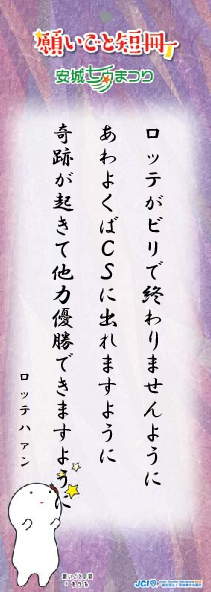 願いごと短冊
安城七夕まつり
ロッテがビリで終わりませんように
あわよくばCSに出れますように
奇跡が起きて他力優勝できますように
ロッテハァン
JCI